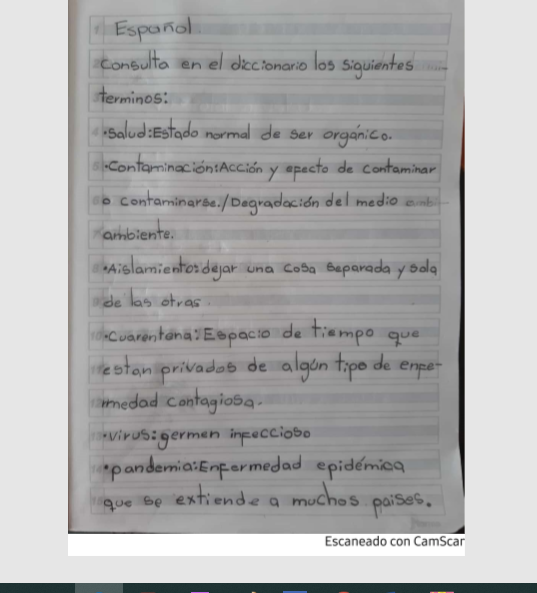 Español
Consulta en el diccionario los siguientes
terminos:
•Salud:Estado normal de ser orgánico.
•Contaminación:Acción y efecto de contaminar
o contaminarse./Degradación del medio amb
ambiente.
•Aislamiento:dejar una cosa separada y sola
de las otras.
•Cuarentena:Espacio de tiempo que
estan privados de algún tipo de enfe-
rmedad contagiosa.
•Virus:germen infeccioso
•pandemia:Enfermedad epidémica
que se extiende a muchos paises.
Escaneado con CamScan